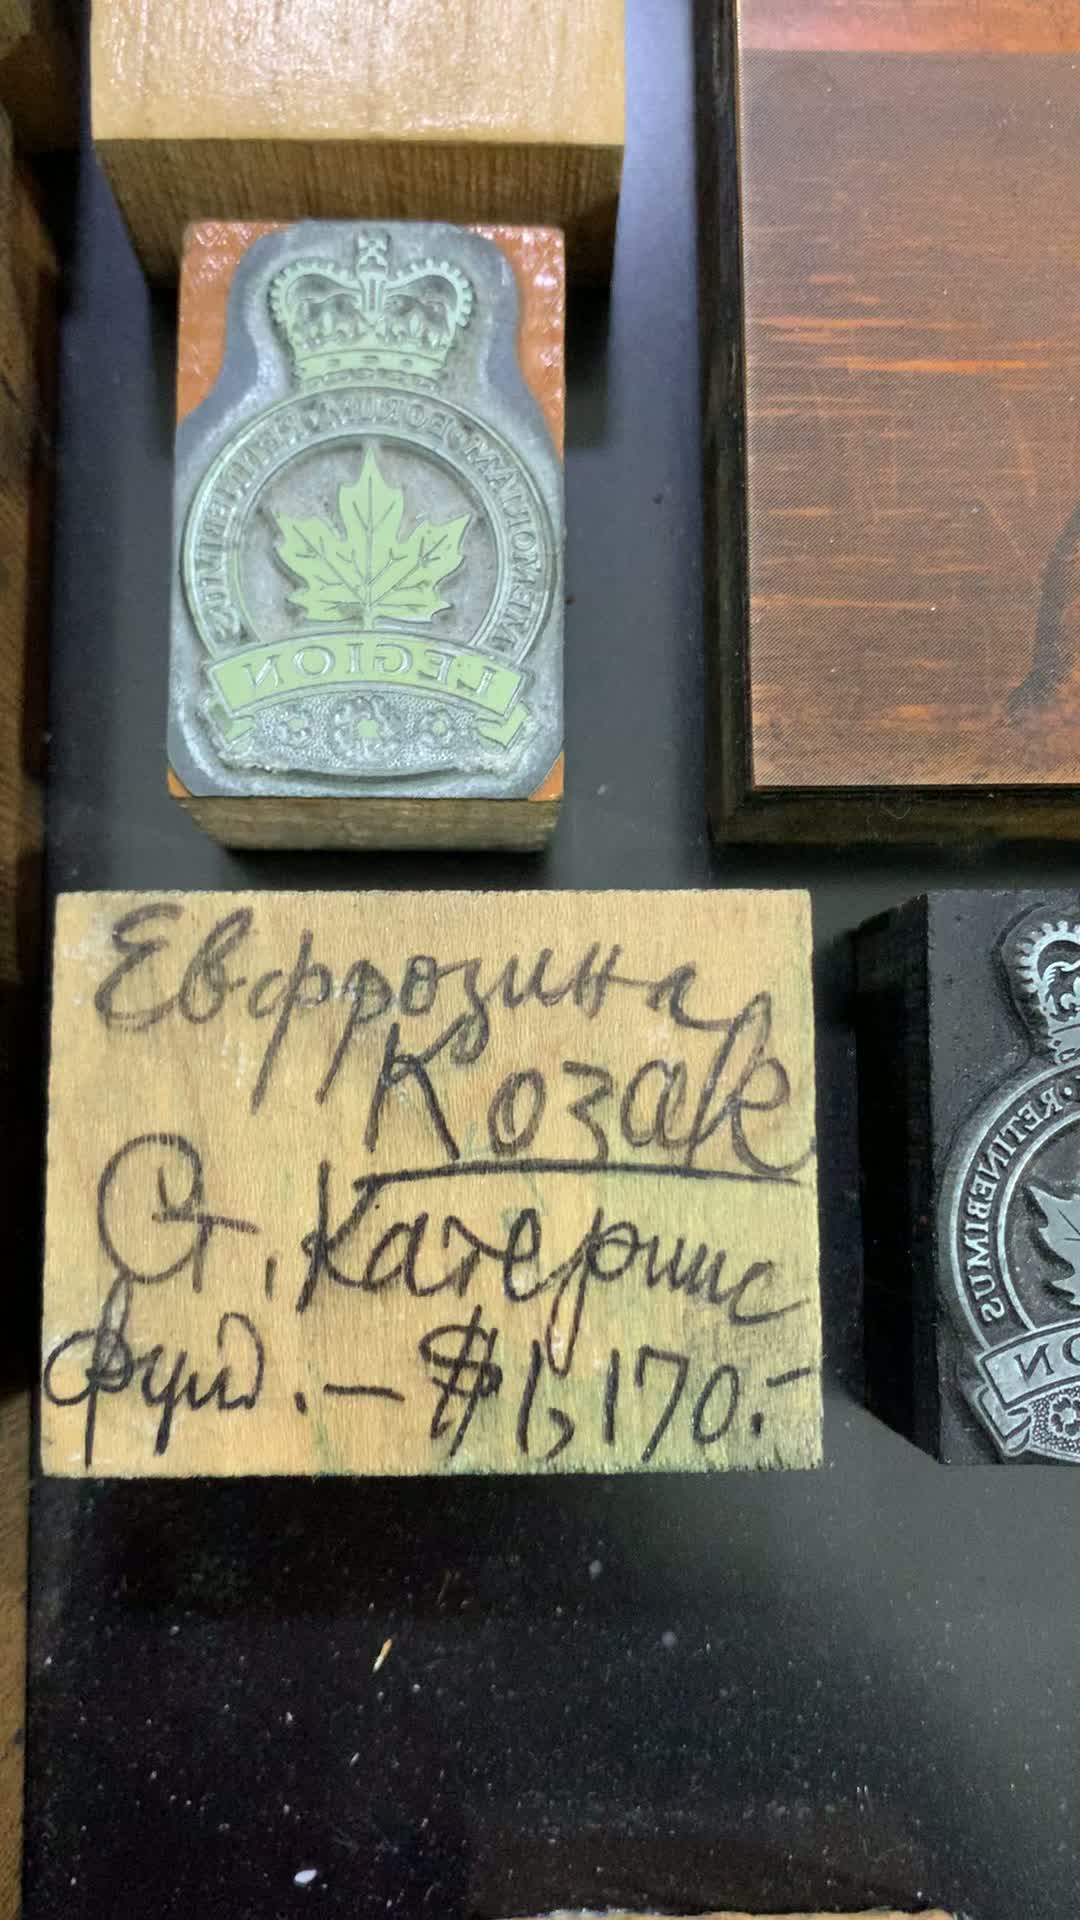 MEMORIAM EORUM RETINEBIMUS
LEGION
Евфрозина
Козак
Ст. Катеринс
фунд. — $1,170.-
RETINEBIMUS